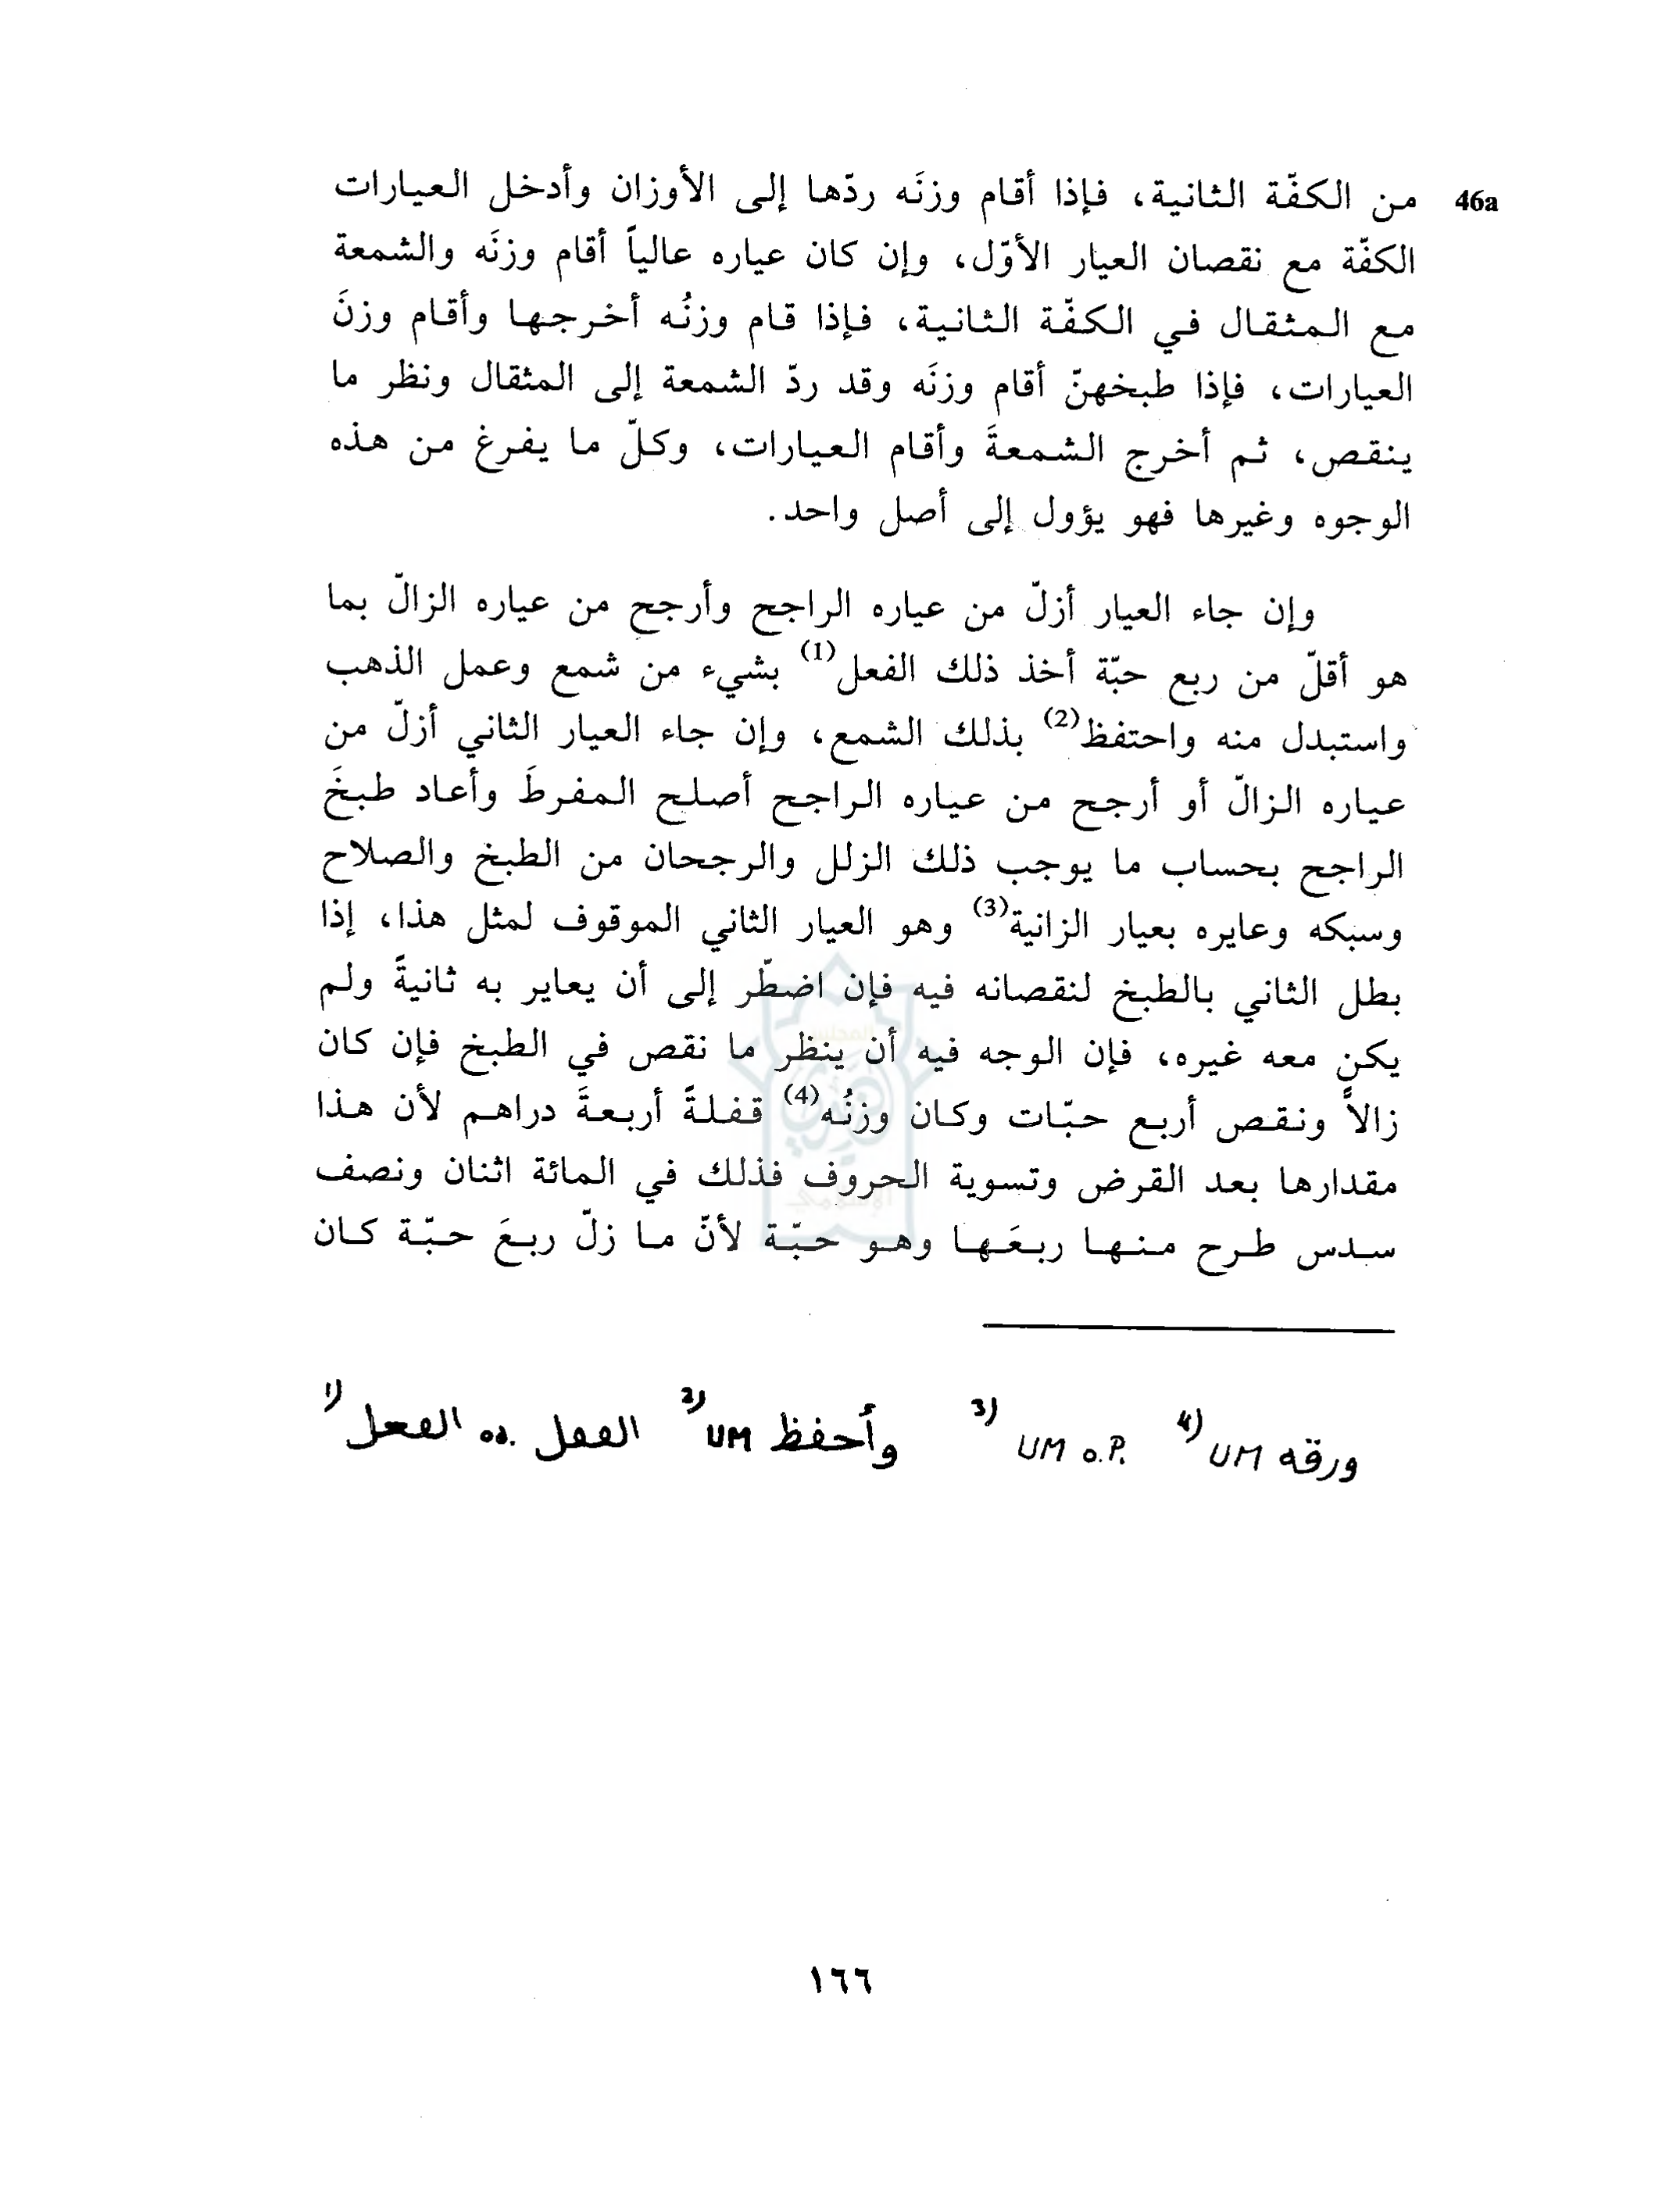 46a من الكفّة الثانية، فإذا أقام وزنَه ردّها إلى الأوزان وأدخل العيارات
الكفّة مع نقصان العيار الأوّل، وإن كان عياره عالياً أقام وزنَه والشمعة
مع المثقال في الكفّة الثانية، فإذا قام وزنُه أخرجها وأقام وزنَ
العيارات، فإذا طبخهنّ أقام وزنَه وقد ردّ الشمعة إلى المثقال ونظر ما
ينقص، ثم أخرج الشمعةَ وأقام العيارات، وكلّ ما يفرغ من هذه
الوجوه وغيرها فهو يؤول إلى أصل واحد.
وإن جاء العيار أزلّ من عياره الراجح وأرجح من عياره الزالّ بما
هو أقلّ من ربع حبّة أخذ ذلك الفعل(1) بشيء من شمع وعمل الذهب
واستبدل منه واحتفظ(2) بذلك الشمع، وإن جاء العيار الثاني أزلّ من
عياره الزالّ أو أرجح من عياره الراجح أصلح المفرطَ وأعاد طبخَ
الراجح بحساب ما يوجب ذلك الزلل والرجحان من الطبخ والصلاح
وسبكه وعايره بعيار الزانية(3) وهو العيار الثاني الموقوف لمثل هذا، إذا
بطل الثاني بالطبخ لنقصانه فيه فإن اضطّر إلى أن يعاير به ثانيةً ولم
يكن معه غيره، فإن الوجه فيه أن ينظر ما نقص في الطبخ فإن كان
زالاً ونقص أربع حبّات وكان وزنُه(4) قفلةً أربعةَ دراهم لأن هذا
مقدارها بعد القرض وتسوية الحروف فذلك في المائة اثنان ونصف
سدس طرح منها ربعَها وهو حبّة لأنّ ما زلّ ربعَ حبّة كان
1) الفعل od. الففل 2) UM وأحفظ 3) UM o.P. 4) UM ورقه
١٦٦